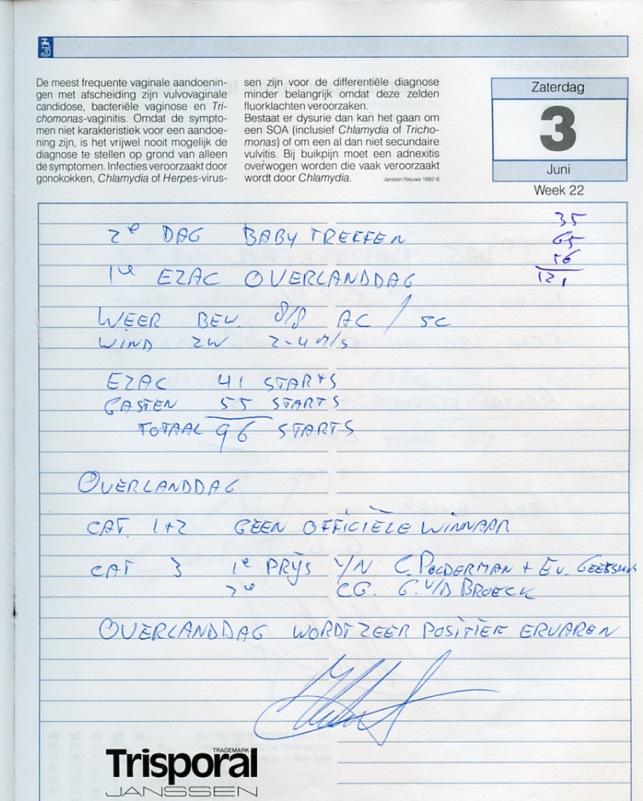 De meest frequente vaginale aandoenin-
gen met afscheiding zijn vulvovaginale
candidose, bacteriële vaginose en Tri-
chomonas-vaginitis. Omdat de sympto-
men niet karakteristiek voor een aandoe-
ning zijn, is het vrijwel nooit mogelijk de
diagnose te stellen op grond van alleen
de symptomen. Infecties veroorzaakt door
gonokokken, Chlamydia of Herpes-virus-
sen zijn voor de differentiële diagnose
minder belangrijk omdat deze zelden
fluorklachten veroorzaken.
Bestaat er dysurie dan kan het gaan om
een SOA (inclusief Chlamydia of Tricho-
monas) of om een al dan niet secundaire
vulvitis. Bij buikpijn moet een adnexitis
overwogen worden die vaak veroorzaakt
wordt door Chlamydia. Janssen Nieuws 1992-6
Zaterdag
3
Juni
Week 22
2e DAG BABY TREFFEN
1e EZAC OVERLANDDAG
35
65
56
121
WEER BEW. 8/8 AC / SC
WIND ZW 2-4 M/S
EZAC 41 STARTS
GASTEN 55 STARTS
TOTAAL 96 STARTS
OVERLANDDAG
CAT. 1+2 GEEN OFFICIËLE WINNAAR
CAT 3 1e PRIJS YN C. POLDERMAN + E.v.
2e CG. G. V/D BROECK
OVERLANDDAG WORDT ZEER POSITIEF ERVAREN
Trisporal
TRADEMARK
JANSSEN